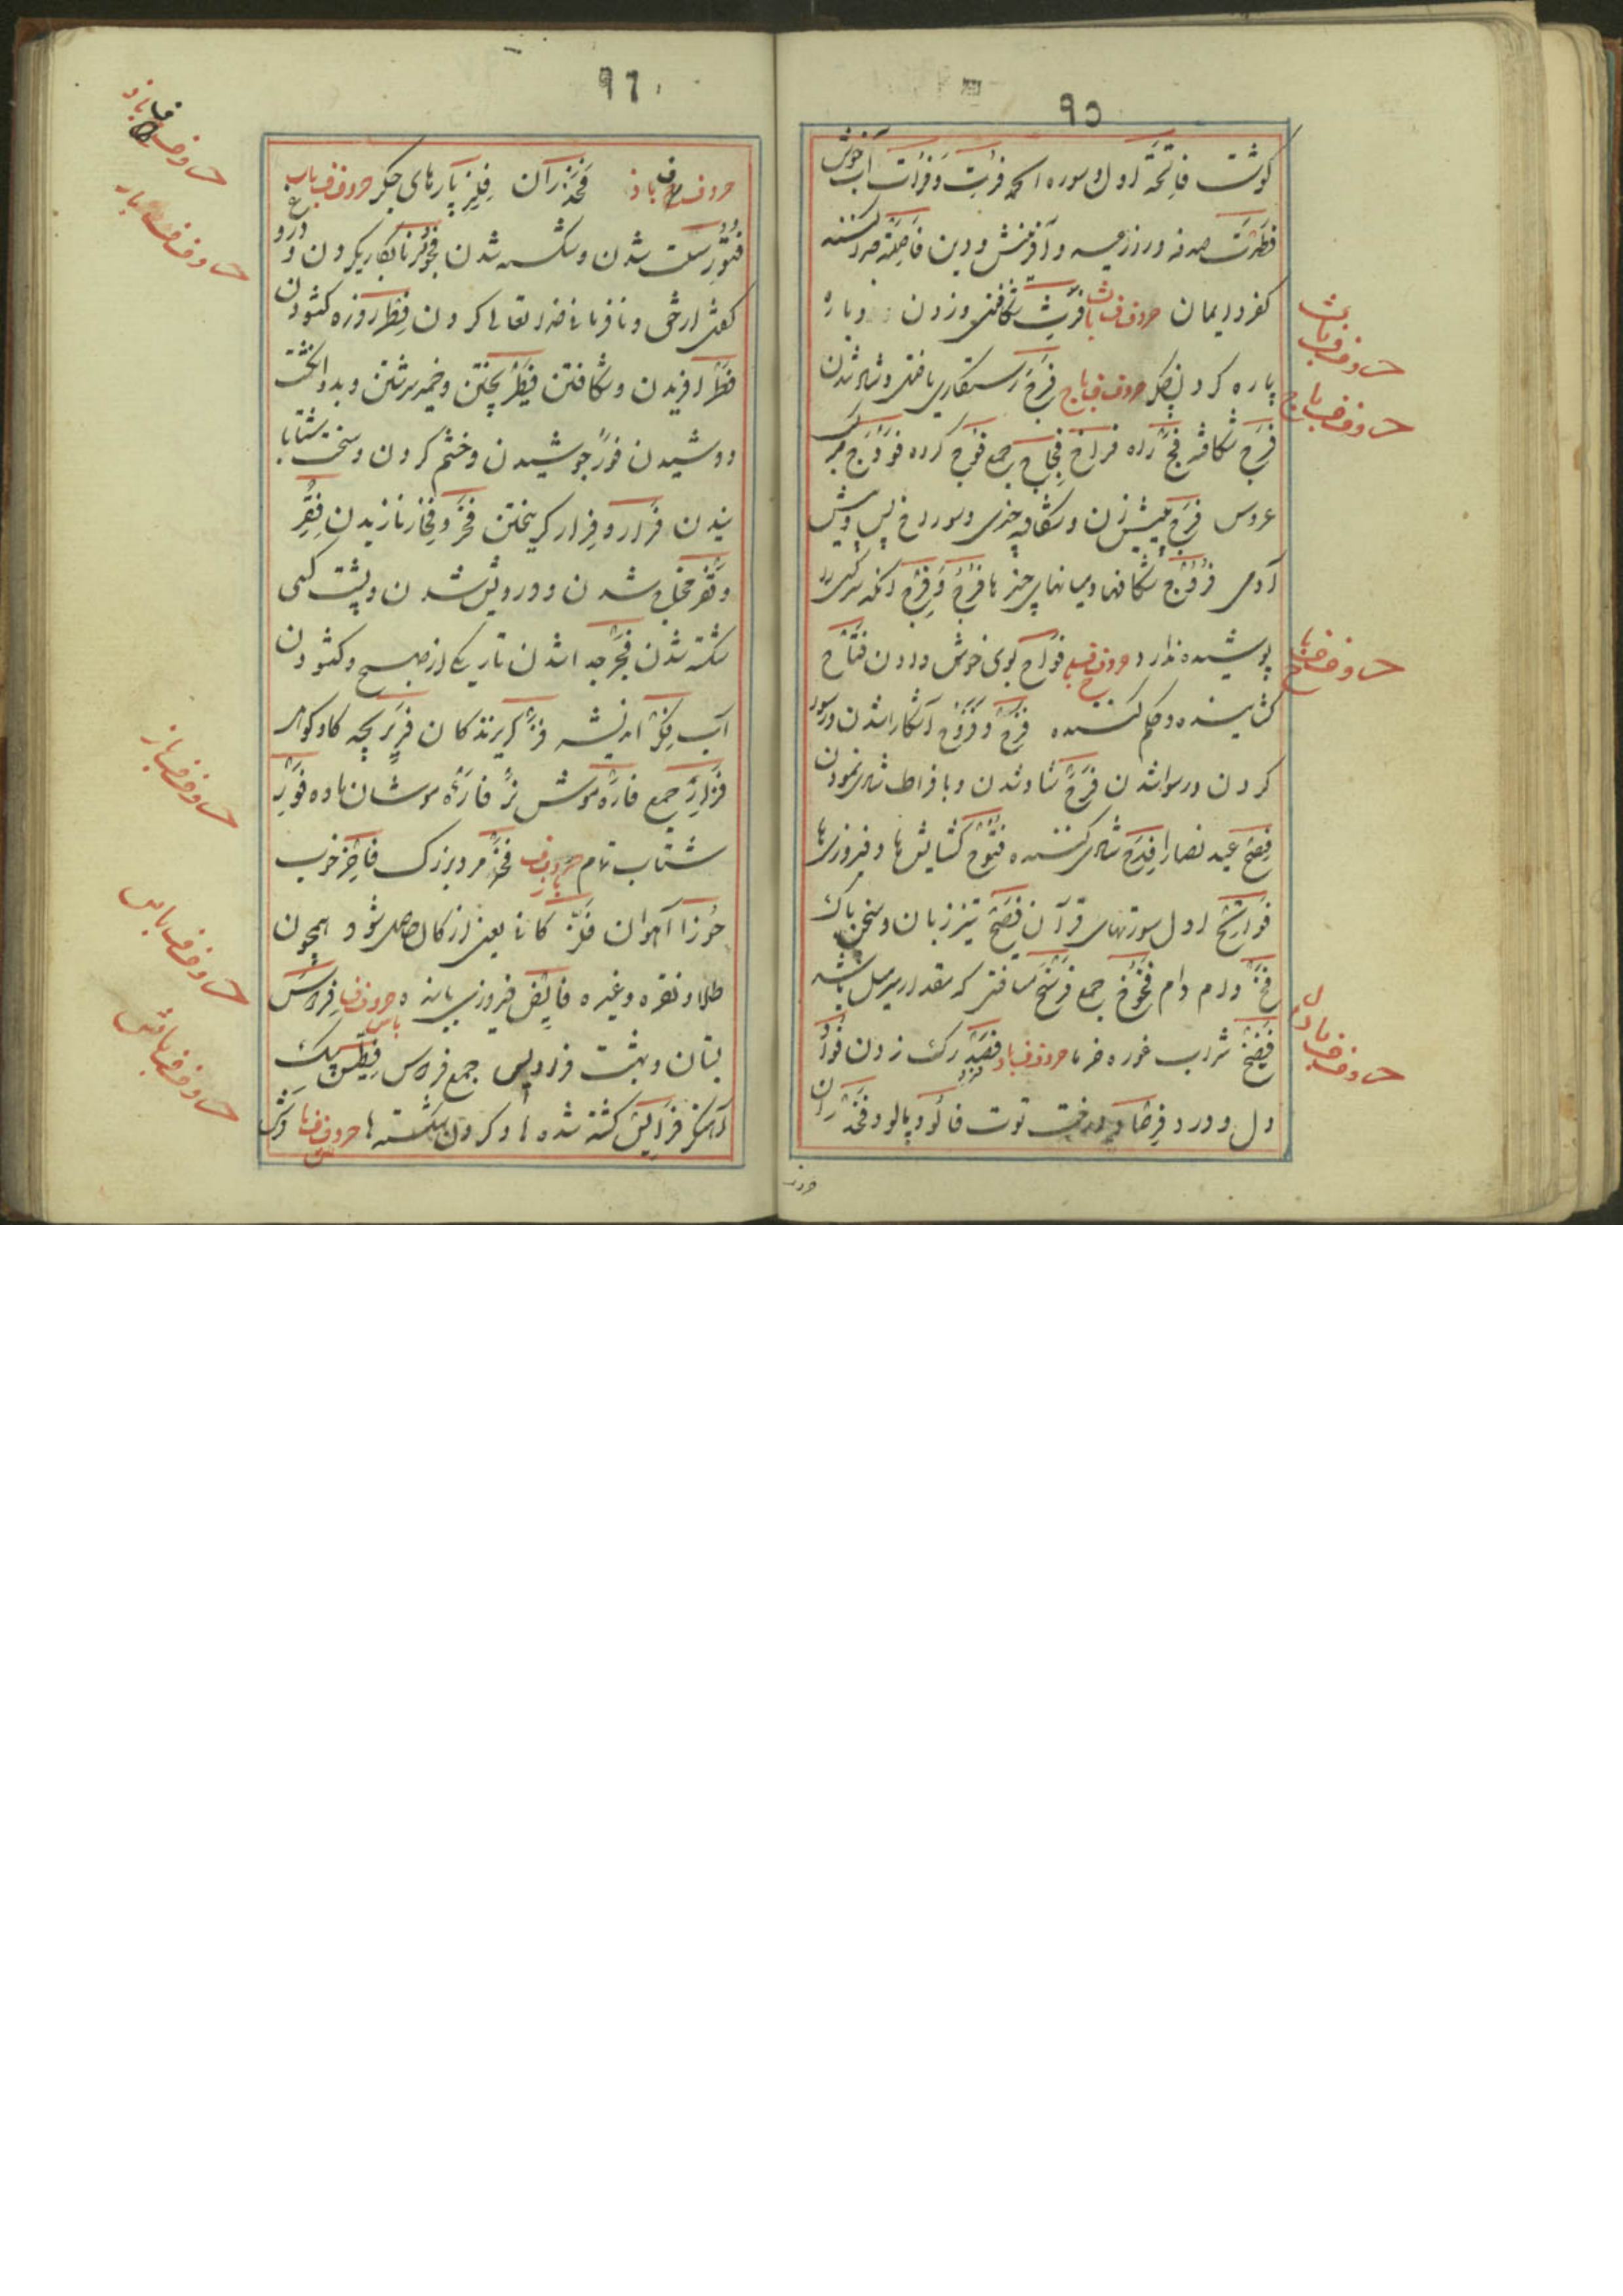 ٩٥
گوشت فاتحة اول سوره الحمد فرت و فرات آب خوش
فطرت صدقه و روز عید و آفرینش و دین فاصلة جدا کننده
کفر و ایمان حروف ف باث فرث شکافتن و زدن و پاره
پاره کردن جگر حروف ف باج فرج رستکاری یافتن و شاد شدن
فرج شکافته فج راه فراخ فجاج جمع فوج کروه فودج
عروس فرج پیش زن و شکاف چیزی و سوراخ پس و پیش
آدمی فروج شکافها و میانهای چیزها فرج و فرج آنکه سر کسی را
پوشیده ندارد حروف ف باح فواح بوی خوش دادن فتاح
کشاینده و حکم کننده فرح و فروح آشکارا شدن و رسوا
کردن و رسوا شدن فرح شاد شدن و بافراط شادی نمودن
فصح عید نصارا فدح شادی کننده فتوح کشایش ها و فیروزی ها
فواتح اول سورتهای قرآن فصیح تیز زبان و سخن پاک
فخ دام فخوخ جمع فرسخ مسافتی که مقدار سه میل باشد
فضیخ شراب غوره خرما حروف ف باد فصد رک زدن فؤاد
دل و درد فرصاد درخت توت فالود پالوده فخذ ران
حروف ف باث
حروف ف باج
حروف ف باح
حروف ف بادال
٩٦
حروف ف باذ فخذ ران فلذ پارهای جکر حروف ف بار
فتور سست شدن و شکسته شدن فجور نابکاری کردن و دروغ
کفتن و نافرمانی خدا تعالی کردن فطر روزه کشودن
فطر آفریدن و شکافتن فطیر پختن و خمیر سرشتن و بدو انکشت
دوشیدن فور جوشیدن و خشم کردن و سخت شتابا
نیدن فرار و فرار کریختن فخر و فخار نازیدن فقر
و فقر محتاج شدن و درویش شدن و پشت کسی
شکسته شدن فجر جدا شدن تاریکی از صبح و کشودن
آب فکر اندیشه فر کریزندکان فریر بچه کاو کوهی
فرار جمع فاره موش نر فارة موشان ماده فور
شتاب تمام حروف ف باز فخز مرد بزرک فاخر خوب
جوزا آهوان فلز کانی یعنی از کان حاصل شود همچون
طلا و نقره و غیره فایز فیروزی یابنده حروف ف باس فردوس
بستان و بهشت فرادیس جمع فردوس فطیس پتک
آهنکر فرایس کشته شده ها و کردن شکسته ها حروف ف باش فرش
حروف ف باذ
حروف ف بار
حروف ف باز
حروف ف باس
حروف ف باش